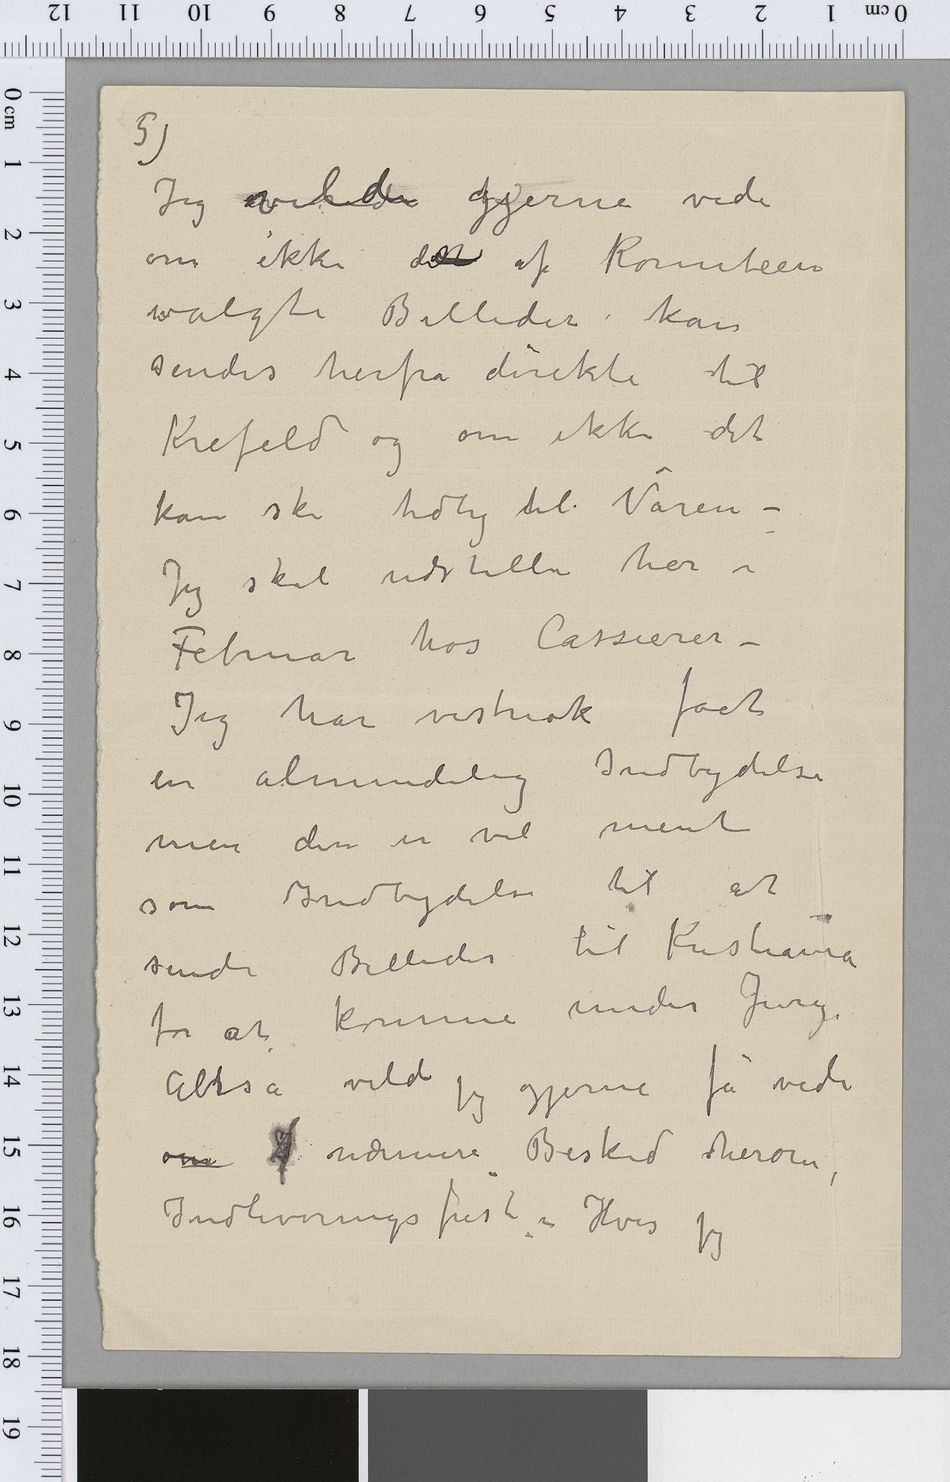 5)
Jeg vilde gjerne vide
om ikke det af Komiteen
valgte Billeder kan
sendes herfra direkte til
Krefeld og om ikke det
kan ske tidlig til Våren –
Jeg skal udstille her i
Februar hos Cassierer –
Jeg har vistnok faet
en almindelig Indbydelse
men den er vel ment
som Indbydelse til at
sende Billeder til Kristiania
for at komme under Jury.
Altså vild jeg gjerne få vide
om nærmere Besked herom,
Indleveringsfrist – Hvis jeg
0 cm 1 2 3 4 5 6 7 8 9 10 11 12
0 cm 1 2 3 4 5 6 7 8 9 10 11 12 13 14 15 16 17 18 19